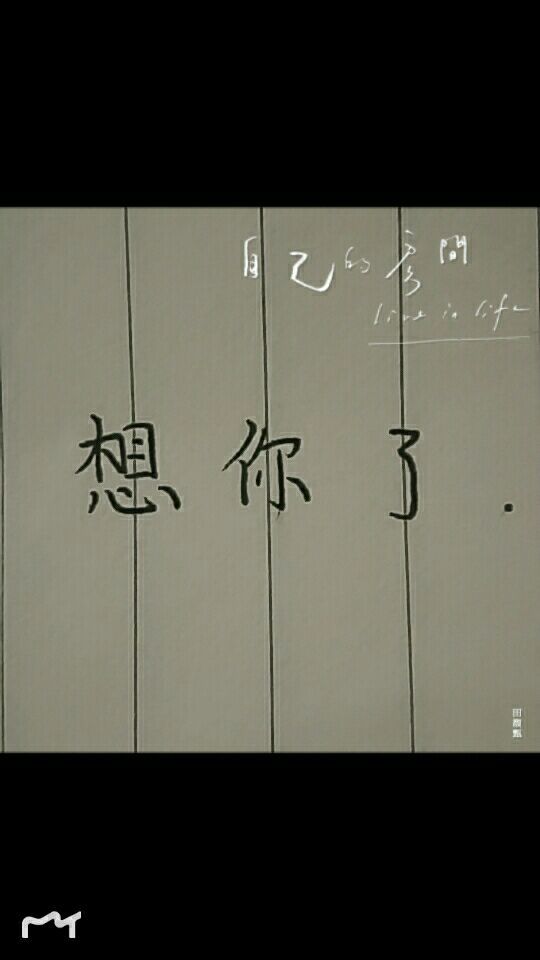 自己的房間
live in life
想你了.
田馥甄